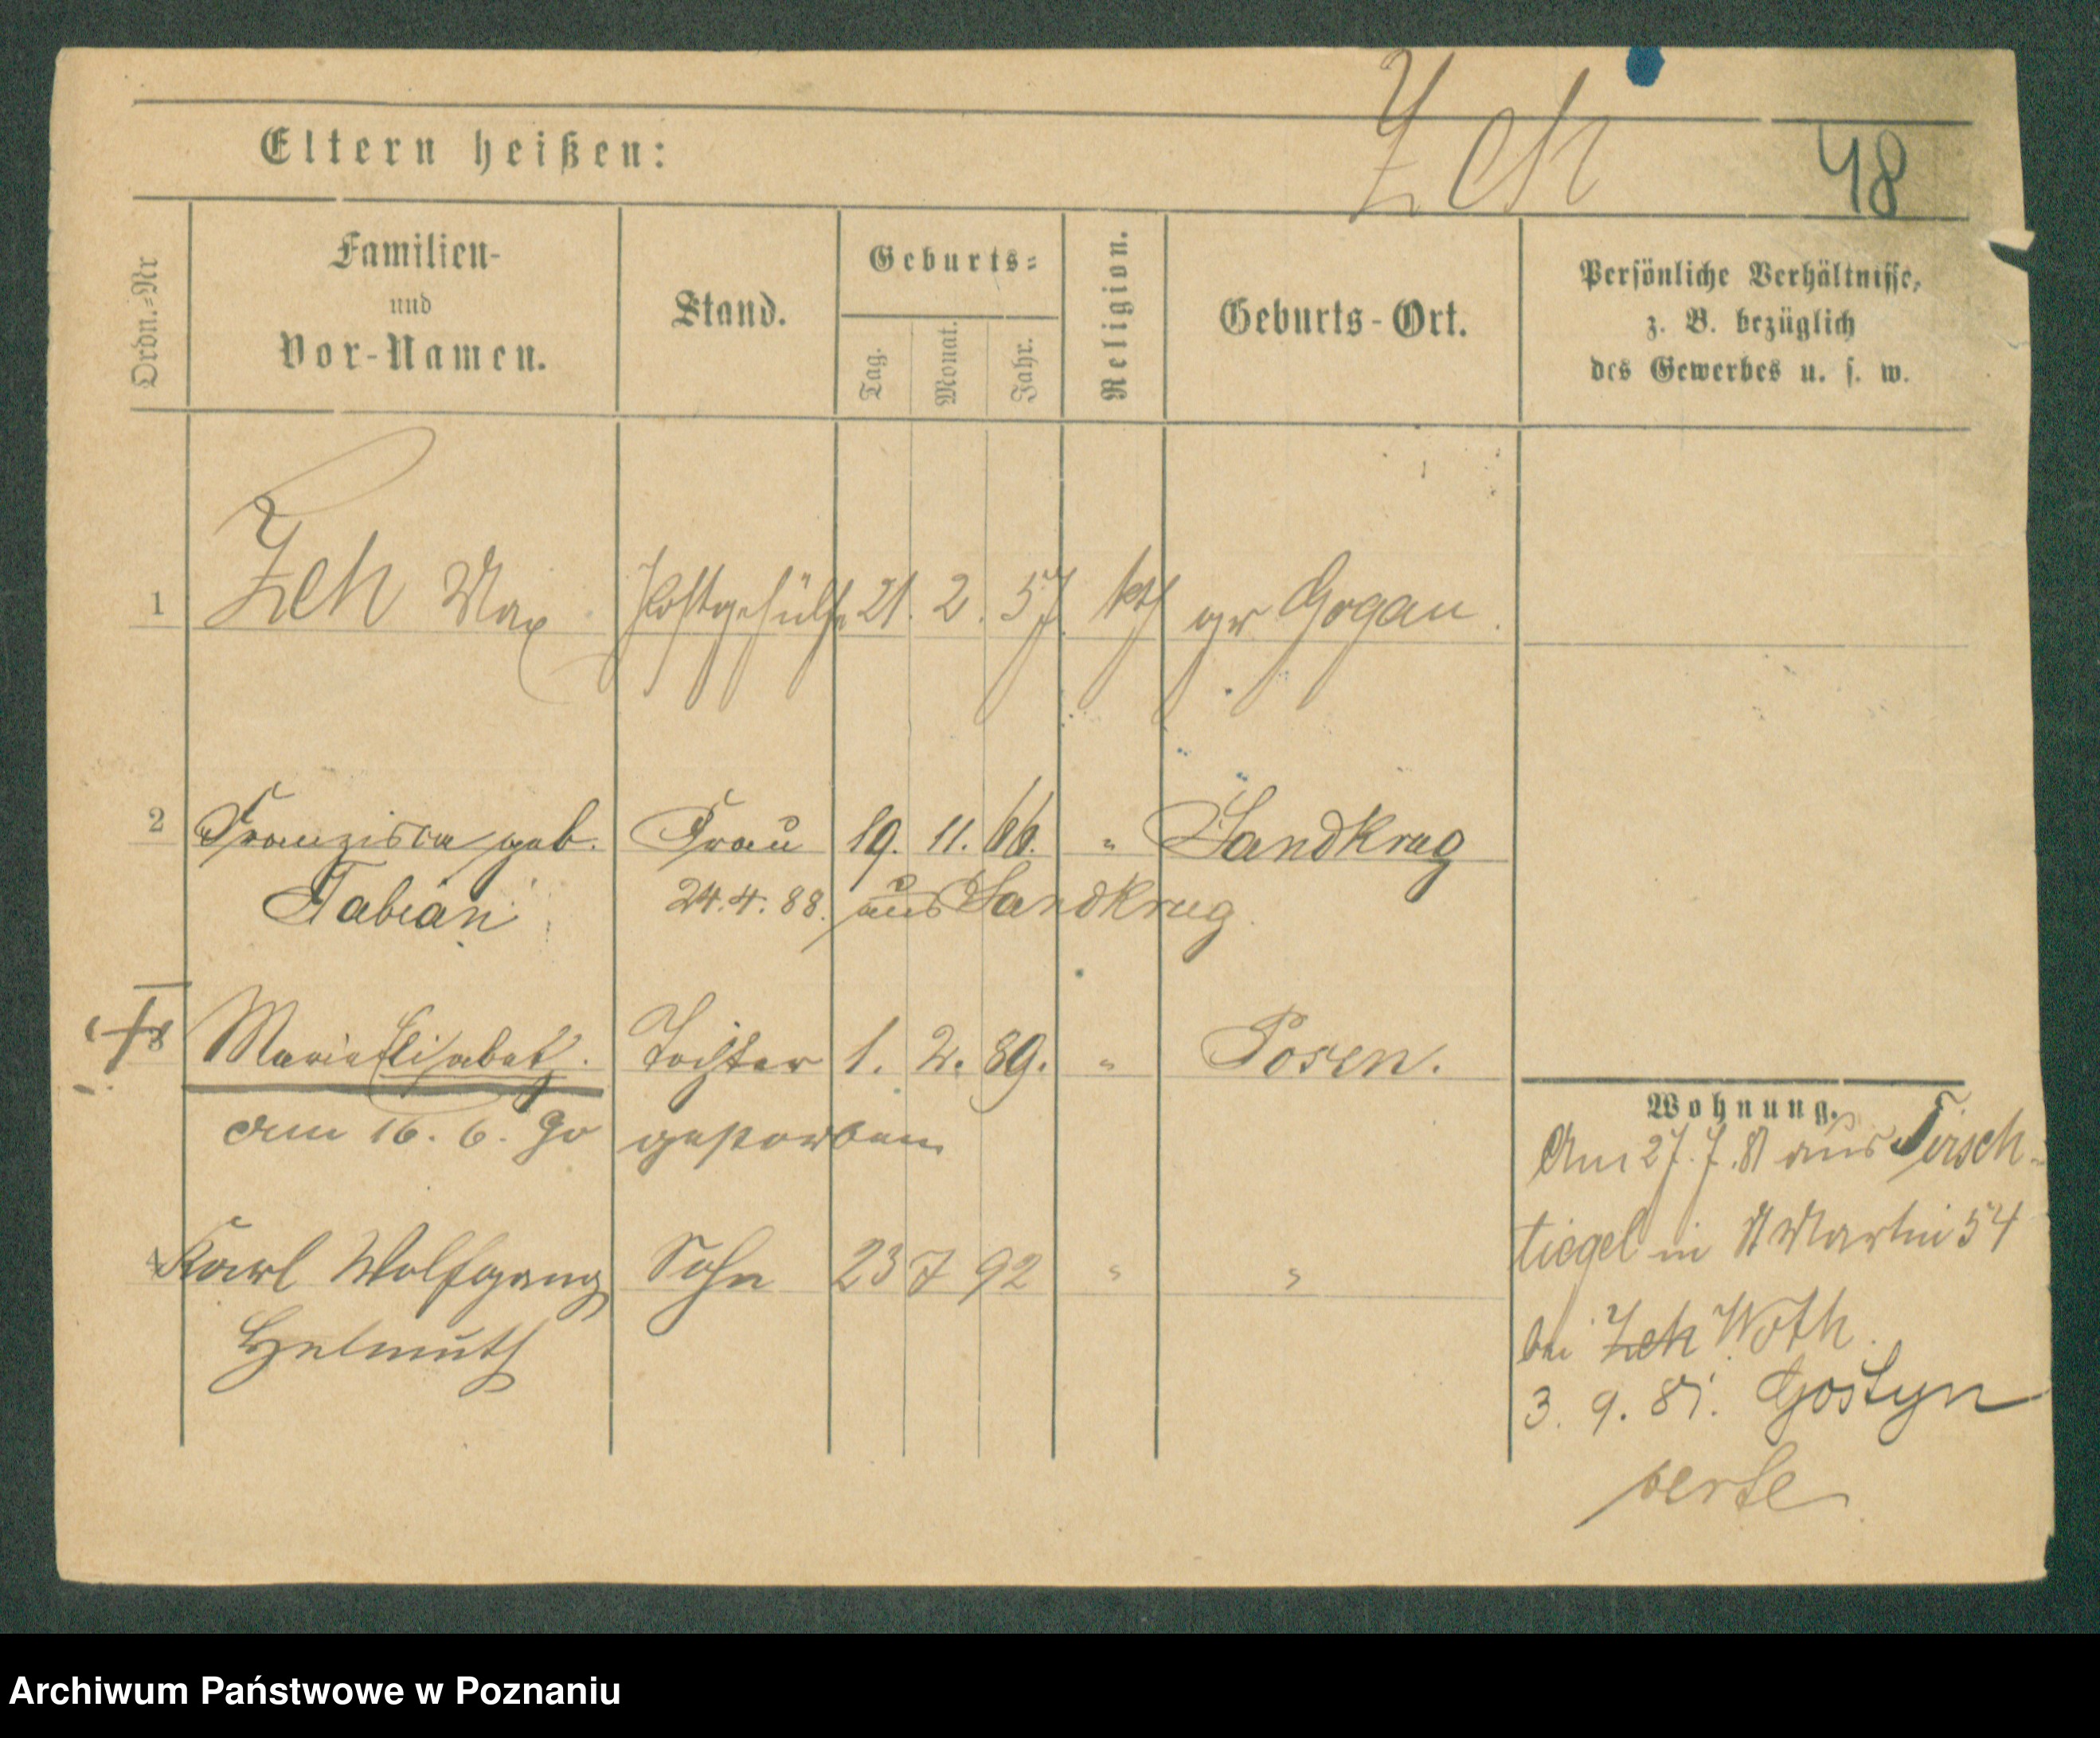 Zeh 48
Eltern heißen:
Ordn.=Nr
Familien-
und
Vor-Namen.
Stand.
Geburts=
Tag.
Monat.
Jahr.
Religion.
Geburts-Ort.
Persönliche Verhältnisse,
z. B. bezüglich
des Gewerbes u. s. w.
1 Zeh Max Postgehülfe 21. 2. 57. kth gr Gogau.
2 Franziska geb. Frau 19. 11. 66. " Sandkrug
Fabian 24. 4. 88. aus Sandkrug.
3 Maria Elisabet. Tochter 1. 2. 89. " Posen.
am 16. 6. 90 gestorben
4 Karl Wolfgang Sohn 23 7 92 " "
Helmuth
Wohnung.
Am 27. 7. 81 aus Tirsch-
tiegel in St Martin 54
bei Zeh Woth.
3. 9. 81. Gostyn
verte
Archiwum Państwowe w Poznaniu